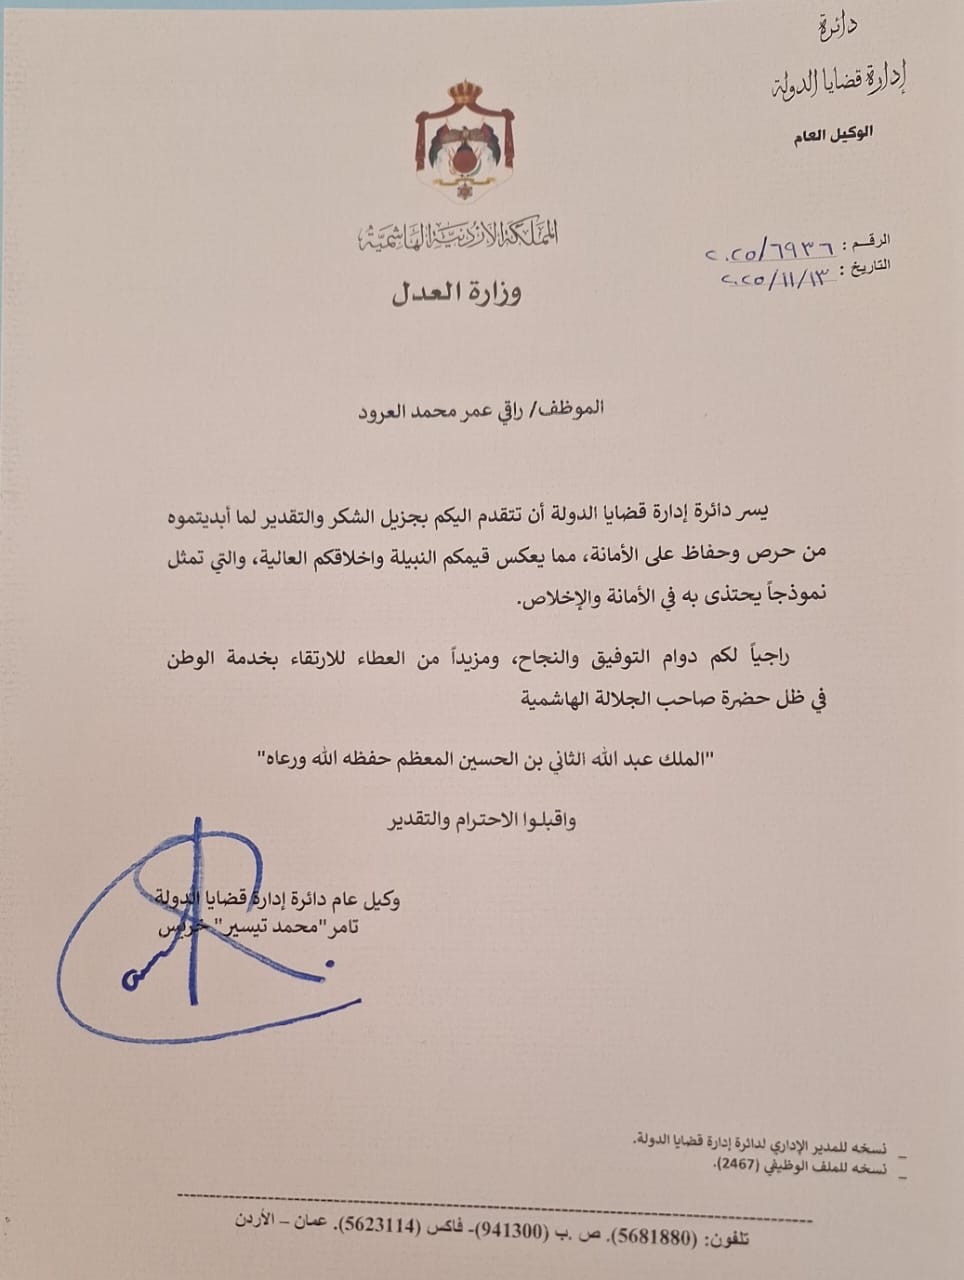 دائرة
إدارة قضايا الدولة
الوكيل العام
المملكة الأردنية الهاشمية
وزارة العدل
الرقم : ٢٠٢٥/٦٩٣٦
التاريخ : ٢٠٢٥/١١/١٣
الموظف/ راقي عمر محمد العرود
يسر دائرة إدارة قضايا الدولة أن تتقدم اليكم بجزيل الشكر والتقدير لما أبديتموه
من حرص وحفاظ على الأمانة، مما يعكس قيمكم النبيلة واخلاقكم العالية، والتي تمثل
نموذجاً يحتذى به في الأمانة والإخلاص.
راجياً لكم دوام التوفيق والنجاح، ومزيداً من العطاء للارتقاء بخدمة الوطن
في ظل حضرة صاحب الجلالة الهاشمية
"الملك عبد الله الثاني بن الحسين المعظم حفظه الله ورعاه"
واقبلوا الاحترام والتقدير
وكيل عام دائرة إدارة قضايا الدولة
تامر "محمد تيسير" خريس
_ نسخه للمدير الإداري لدائرة إدارة قضايا الدولة.
_ نسخه للملف الوظيفي (2467).
تلفون: (5681880). ص .ب (941300)- فاكس (5623114). عمان – الأردن